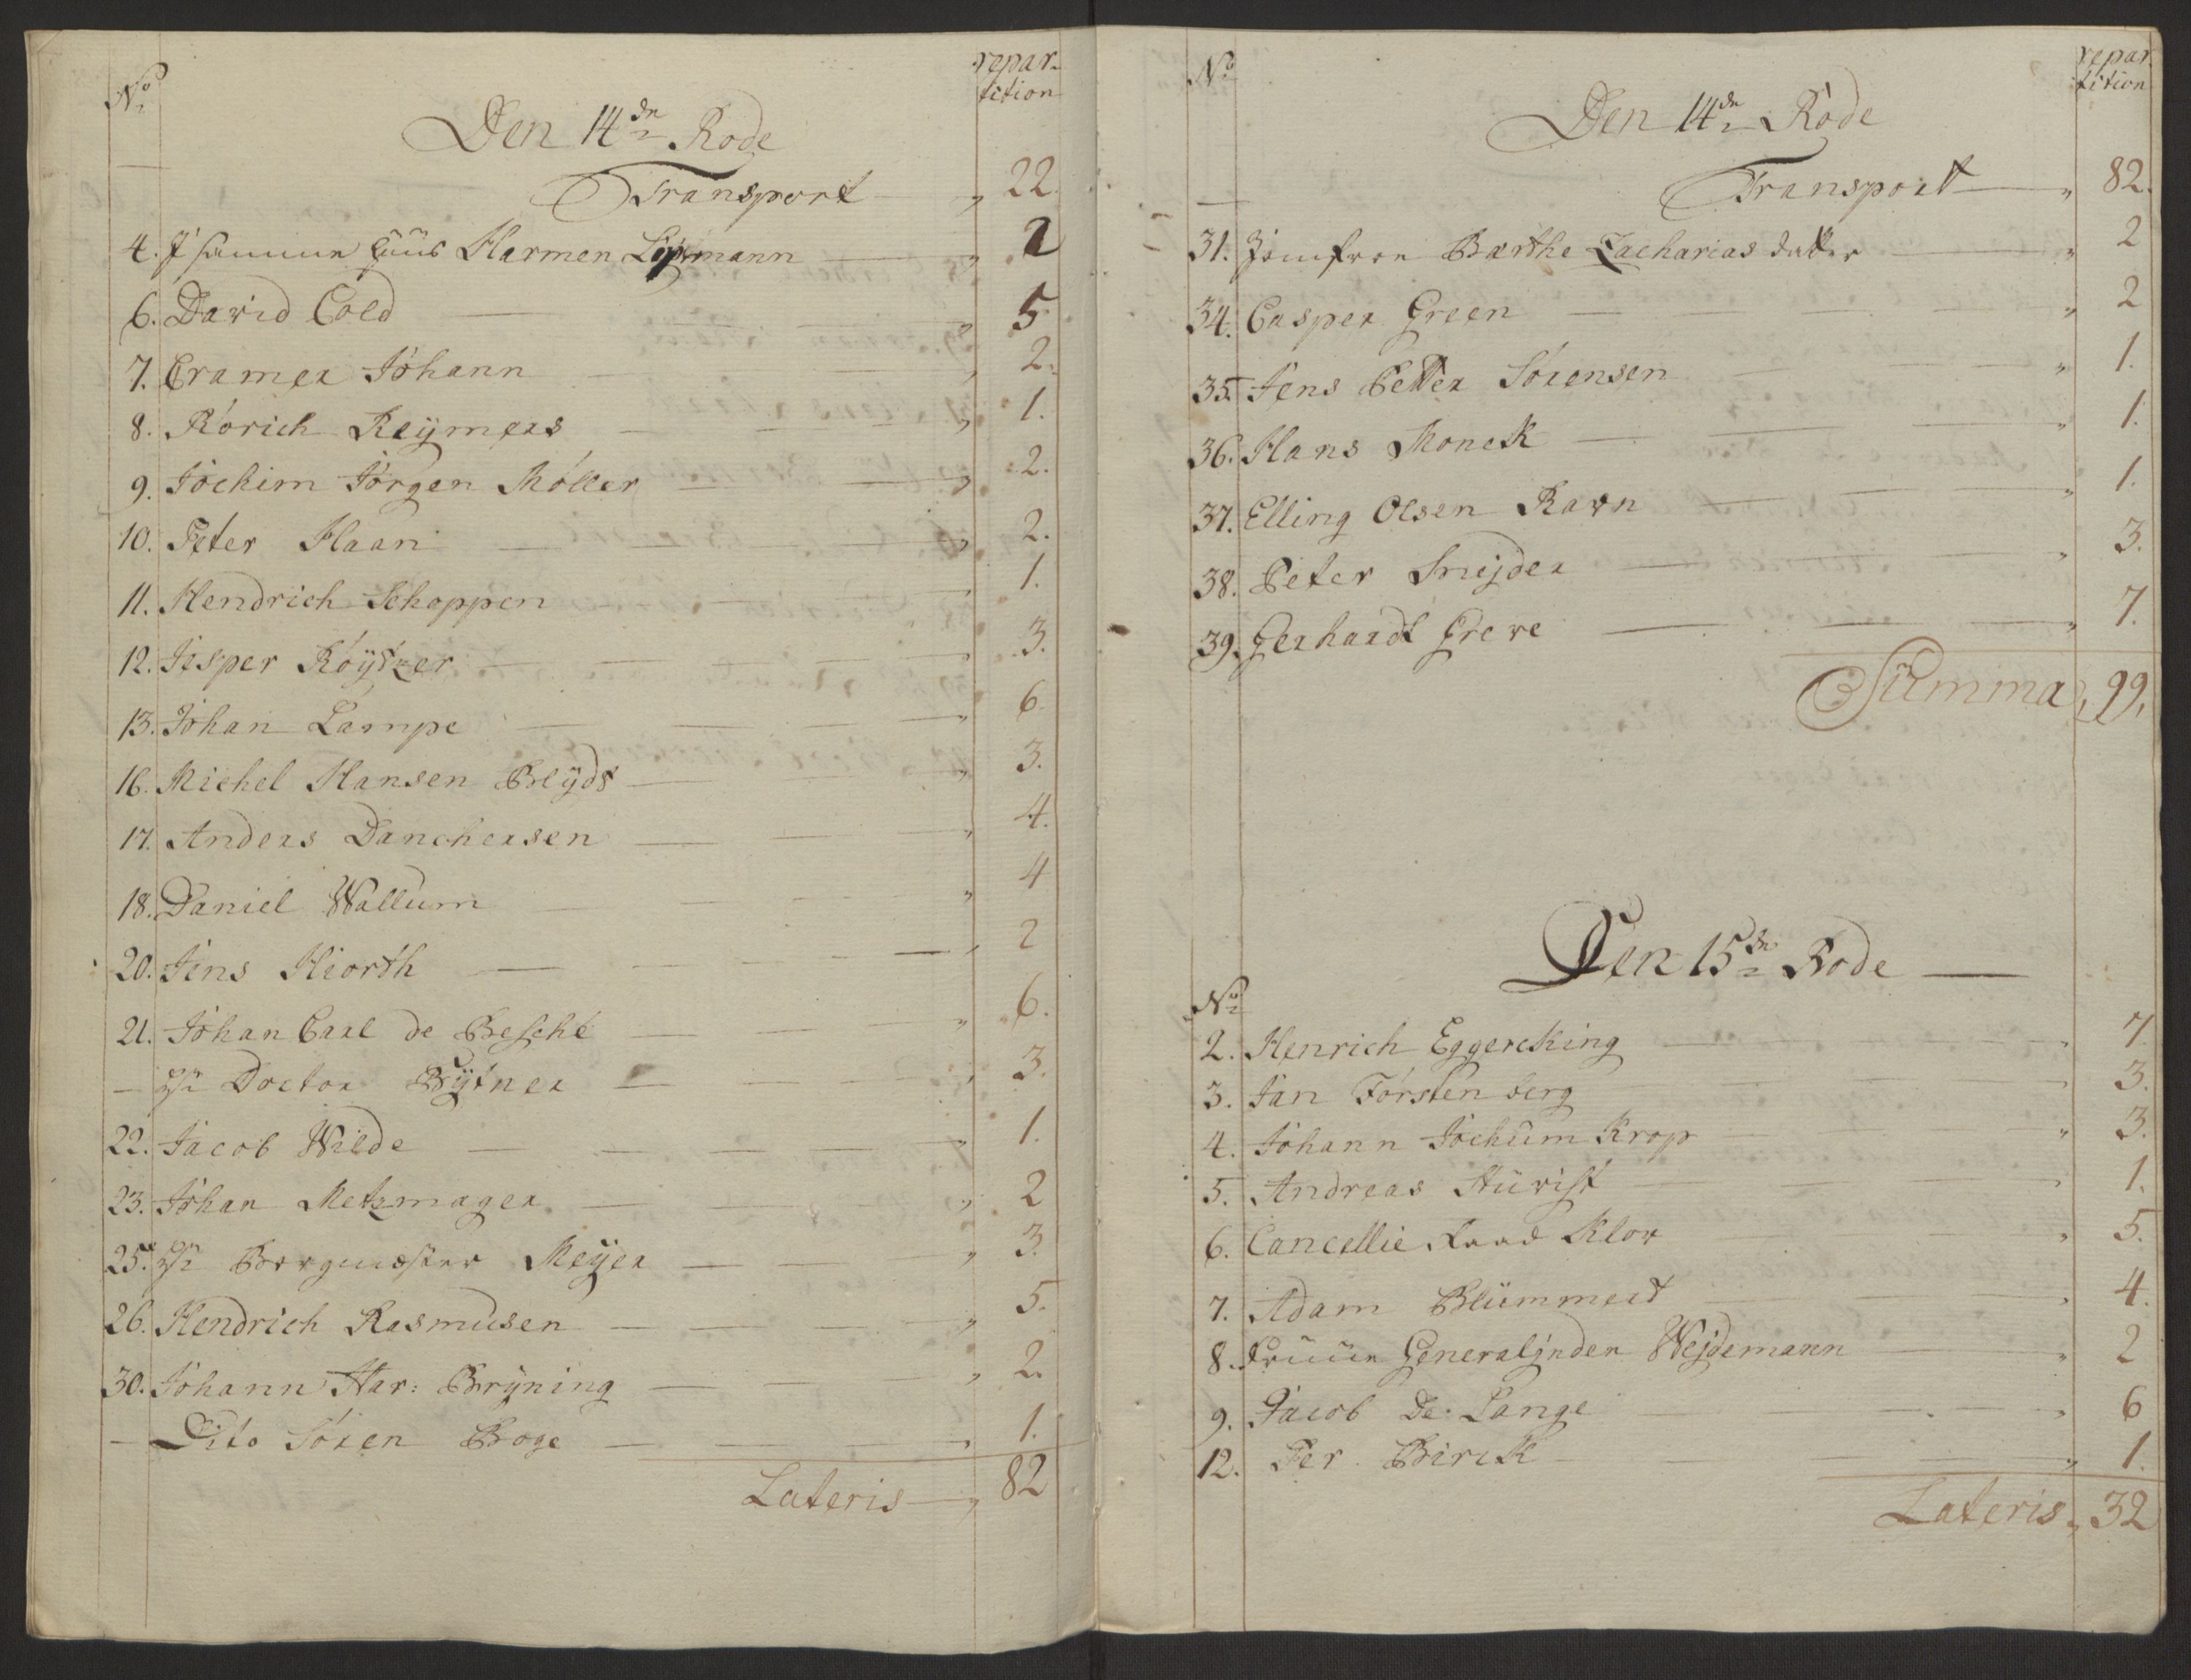 No
repar-
tition
Den 14de Rode
Transport „ 22.
4. J samme Huus Harmen Lipmann „ 2
6. David Cold „ 5.
7. Cramer Johann „ 2.
8. Rörich Reÿmers „ 1.
9. Jochim Jörgen Möller „ 2.
10. Peter Haan „ 2.
11. Hendrich Schoppen „ 1.
12. Jesper Röÿtzer „ 3.
13. Johan Lampe „ 6.
16. Michel Hansen Blÿds „ 3.
17. Anders Danchersen „ 4.
18. Daniel Wallum „ 4
20. Jens Hiorth „ 2
21. Johan Carl de Besche „ 6.
— Hr Doctor Bÿtner „ 3.
22. Jacob Wilde „ 1.
23. Johan Metzmager „ 2
25. Hr Borgmester Meÿer „ 3.
26. Hendrich Rasmusen „ 5.
30. Johann Har: Brÿning „ 2.
— Dito Sören Boge „ 1.
Lateris „ 82
No
repar
tition
Den 14de Rode
Transport „ 82.
31. Jomfrue Barthe Zacharias datter „ 2
34. Casper Green „ 2
35. Jens Petter Sörensen „ 1.
36. Hans Monck „ 1.
37. Elling Olsen Ravn „ 1.
38. Peter Snijder „ 3.
39. Gerhardt Greve „ 7.
Summa „ 99,
Den 15de Rode
No
2. Henrich Eggercking „ 7.
3. Jan Forstenberg „ 3.
4. Johann Jochum Krop „ 3.
5. Andreas Hürist „ 1.
6. Cancellie Raad Klow „ 5.
7. Adam Blümmert „ 4.
8. Fruue Generalinden Wejdemann „ 2
9. Jacob De Lange „ 6
12. Per Birck „ 1.
Lateris „ 32